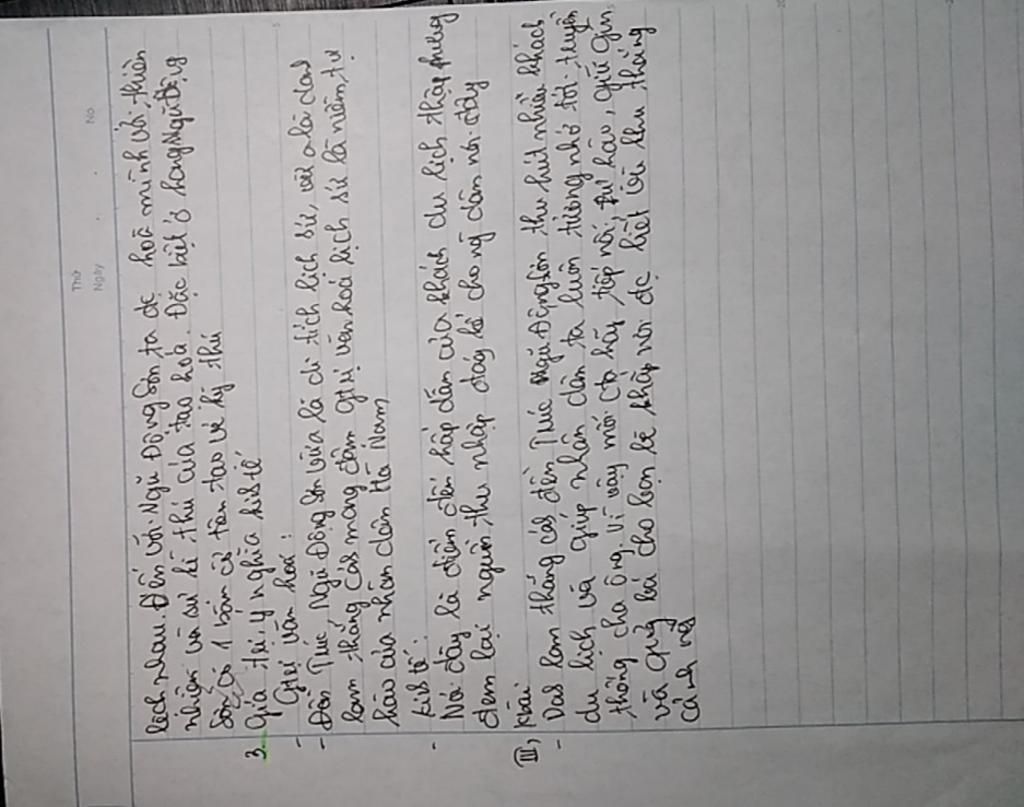 Thứ
Ngày
No
lech nhau. Đến với Ngũ Động Sơn ta dc hoà mình với thiên
nhiên và sự kì thú của tạo hoá. Đặc biệt ở hang Ngũ Động
Sơn có 1 bàn cờ tân tạo vẻ kỳ thú
3. Giá trị, ý nghĩa kinh tế
- Gtrị văn hoá :
- Đền Trúc Ngũ Động Sơn vừa là di tích lịch sử, vừa là danh
lam thắng cảnh mang đậm gtrị văn hoá lịch sử là niềm tự
hào của nhân dân Hà Nam
- Kinh tế :
Nơi đây là điểm đến hấp dẫn của khách du lịch thập phương
đem lại nguồn thu nhập đáng kể cho ng dân nơi đây
III, Khái
- Danh lam thắng cảnh đền Trúc Ngũ Động Sơn thu hút nhiều khách
du lịch và giúp nhân dân ta luôn tưởng nhớ tới truyền
thống cha ông. Vì vậy mỗi cta hãy tiếp nối, tự hào, giữ gìn
và quảng bá cho bạn bè khắp nơi dc biết về khu thắng
cảnh này